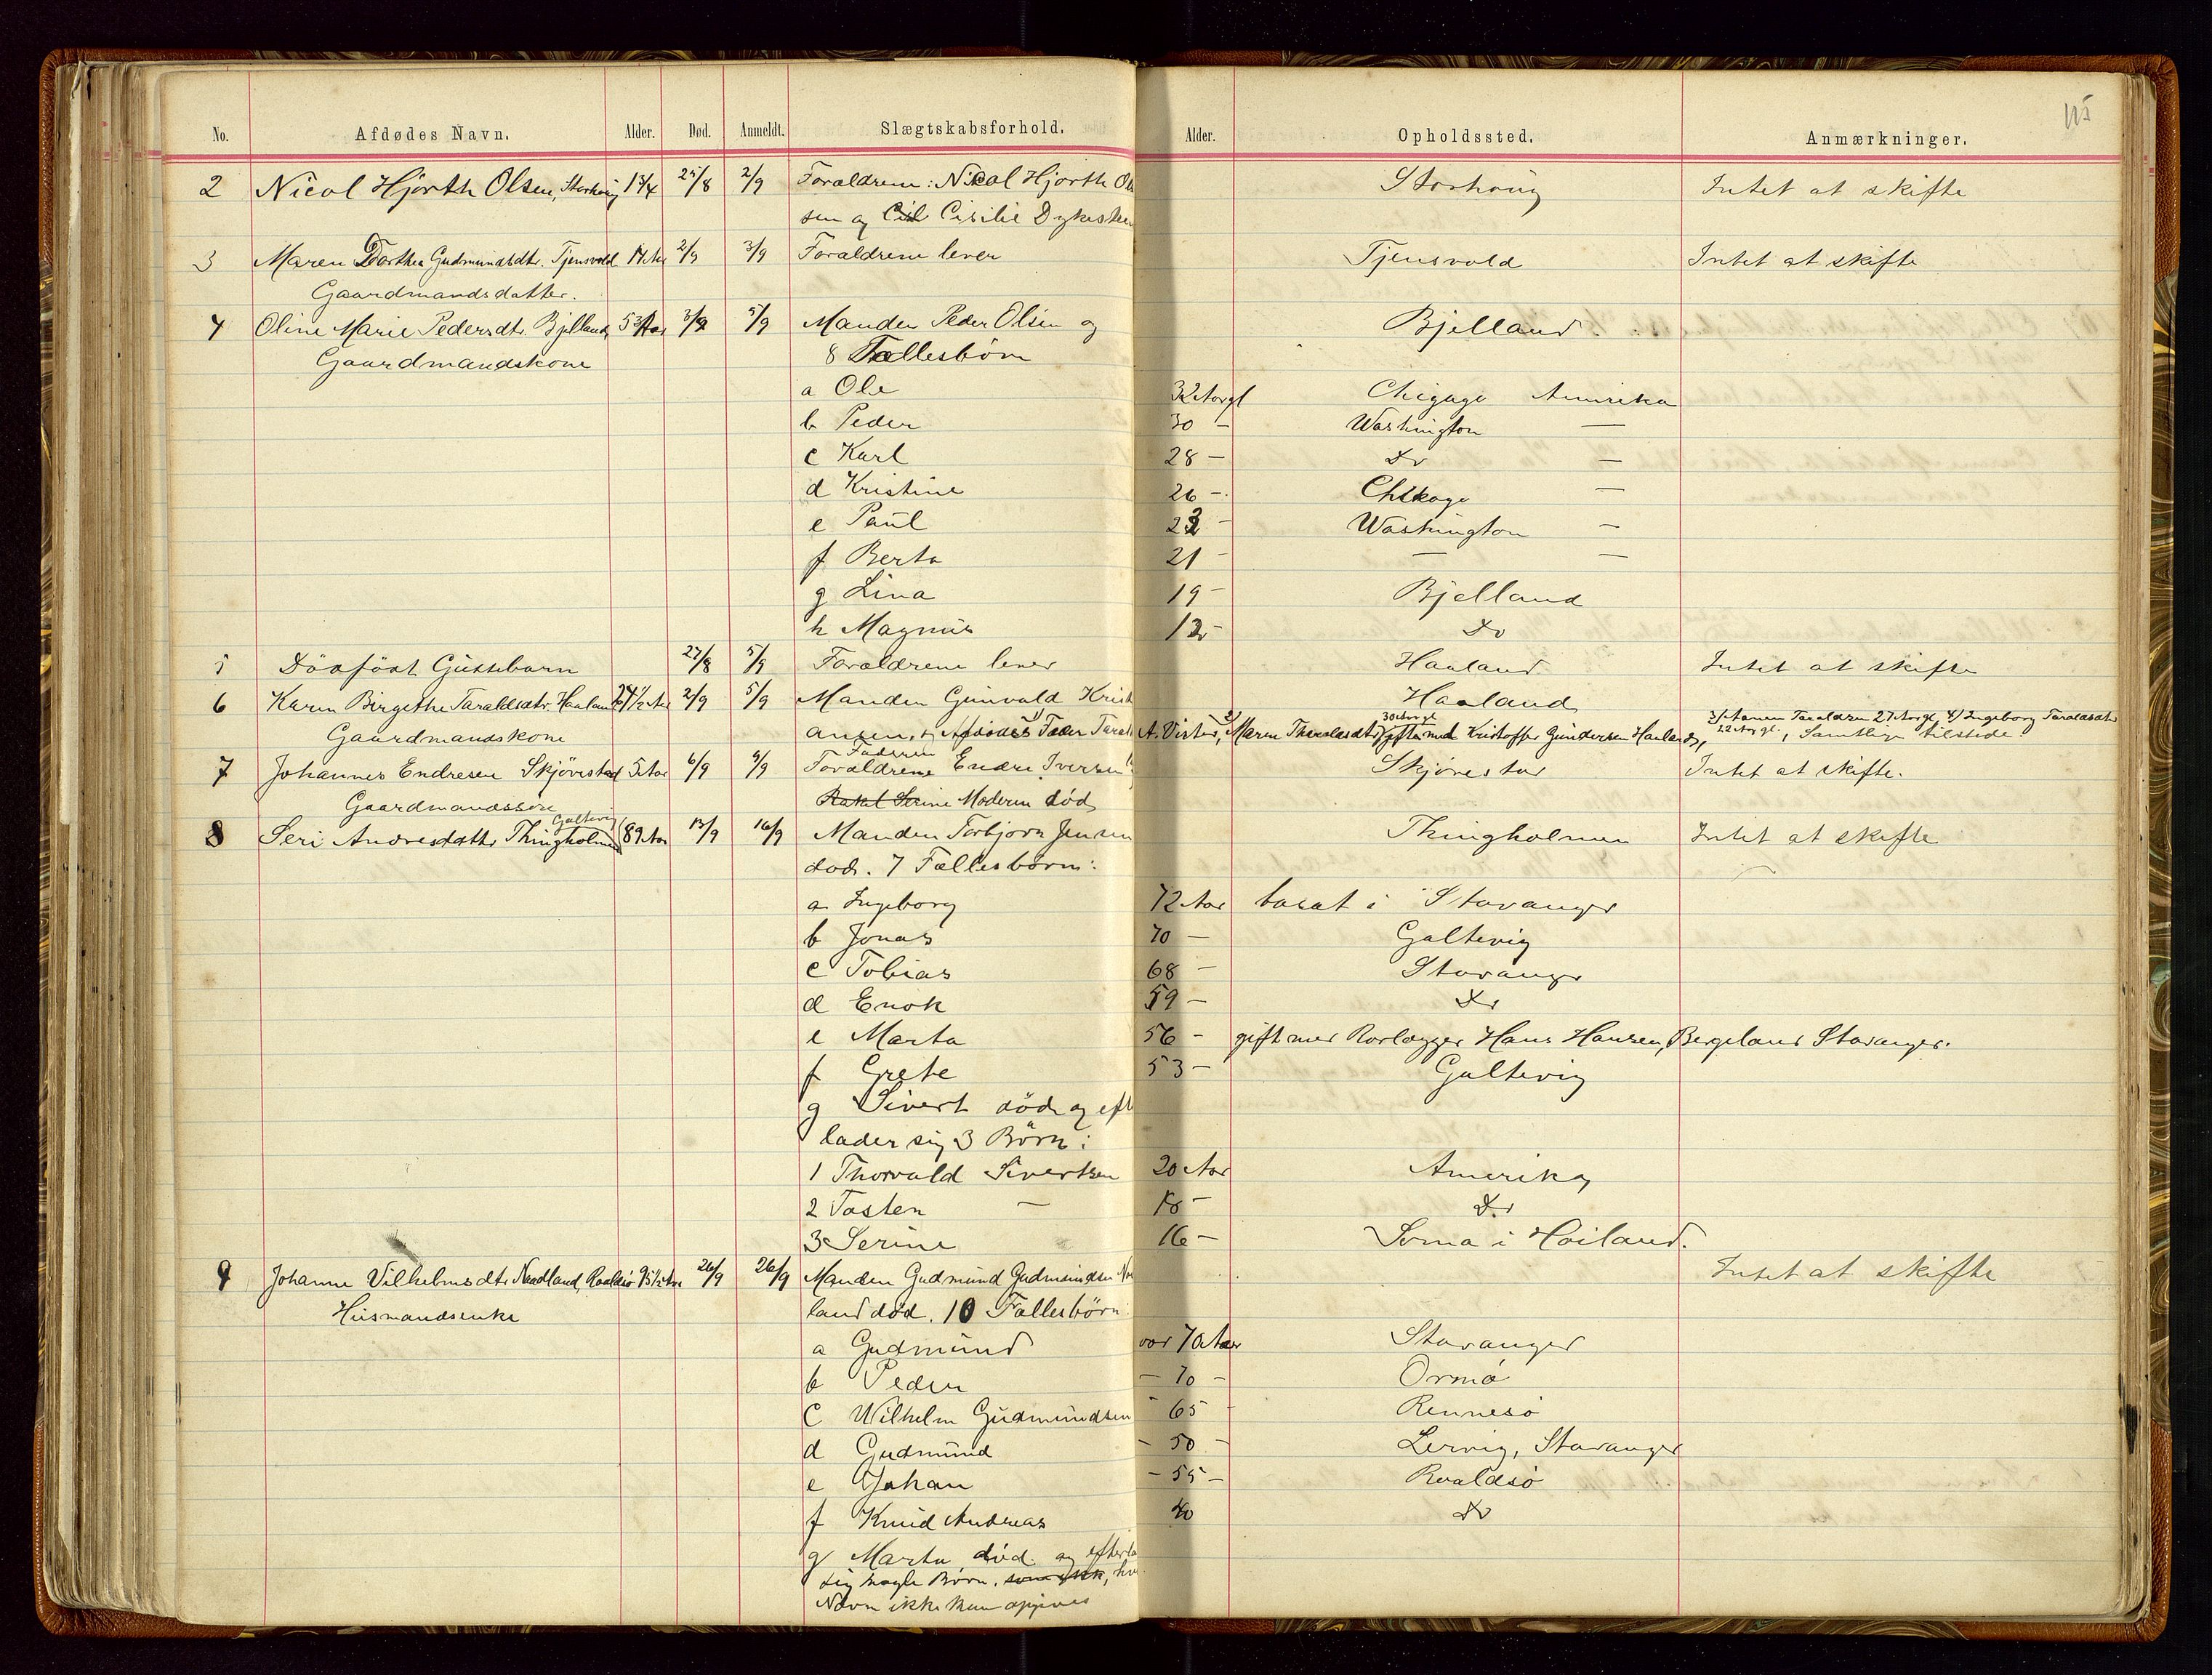 115
No. Afdødes Navn. Alder. Død. Anmeldt. Slægtskabsforhold. Alder. Opholdssted. Anmærkninger.
2 Nicol Hjorth Olsen, Storhoug 1 3/4 25/8 2/9 Forældrene: Nicol Hjorth Ol Storhoug Intet at skifte
sen og Cisilie Dykesten
3 Maren Dorthea Gudmundsdtr. Tjensvold 2/9 3/9 Forældrene lever Tjensvold Intet at skifte
Gaardmandsdatter.
4 Oline Marie Pedersdtr. Bjelland, 53 Aar 3/9 5/9 Manden Peder Olsen og Bjelland.
Gaardmandskone 8 Fællesbörn
a Ole 32 Aar gl Chigago Amerika
b Peder 30 - Washington —
c Karl 28 - Do —
d Kristine 26 - Chikago —
e Paul 23 - Washington —
f Berta 21 - — —
g Lina 19 - Bjelland
h Magnus 12 - Do
5 Dödfödt Guttebarn 27/8 5/9 Forældrene lever Haaland Intet at skifte
6 Karen Birgethe Taraldsdtr. Haaland 24 1/2 Aar 2/9 5/9 Manden Gunvald Krist Haaland
Gaardmandskone ansen, og Afdødes 1) Fader Tarald A. Vister, 2) Maren Tharaldsdtr 30 Aar gl gift med Kristoffer Gundersen Haaland, 3) Taraldsen 27 Aar gl, 4) Ingeborg Taraldsdtr
22 Aar gl., Samtlige tilstede.
7 Johannes Endresen Skjövestad 5 Aar 6/9 9/9 Forældrene Faderen Endre Iversen Skjövestad Intet at skifte.
Gaardmandssön Rakel Serine Moderen död
8 Seri Andresdatter Thingholmen Galtevig 89 Aar 13/9 16/9 Manden Torbjorn Jensen Thingholmen Intet at skifte
död. 7 Fællesbörn:
a Ingeborg 72 Aar bosat i Stavanger
b Jonas 70 — Galtevig
c Tobias 68 — Stavanger
d Enok 59 — Do
e Marta 56 - gift med Rorlægger Hans Hansen, Bergeland Stavanger.
f Grete 53 — Galtevig
g Sivert död og eft
lader sig 3 Börn:
1 Thorvald Sivertsen 20 Aar Amerika
2 Tosten — 18 - Do
3 Serine 16 — Soma i Höiland.
9 Johanne Vilhelmsdtr Nordland, Roaldsö 95 1/2 Aar 26/9 26/9 Manden Gudmund Gudmundsen Nor Intet at skifte
Husmandsenke land död. 10 Fællesbörn:
a Gudmund over 70 Aar Stavanger
b Peder — 70 - Ormö
c Wilhelm Gudmundsen - 65 - Rennesö
d Gudmund - 50 - Lervig, Stavanger
e Johan - 55 - Roaldsö
f Knud Andreas 40 Do
g Marta död. og efterla
sig nogle Börn, som ikke, hvi
Navn ikke kan opgives